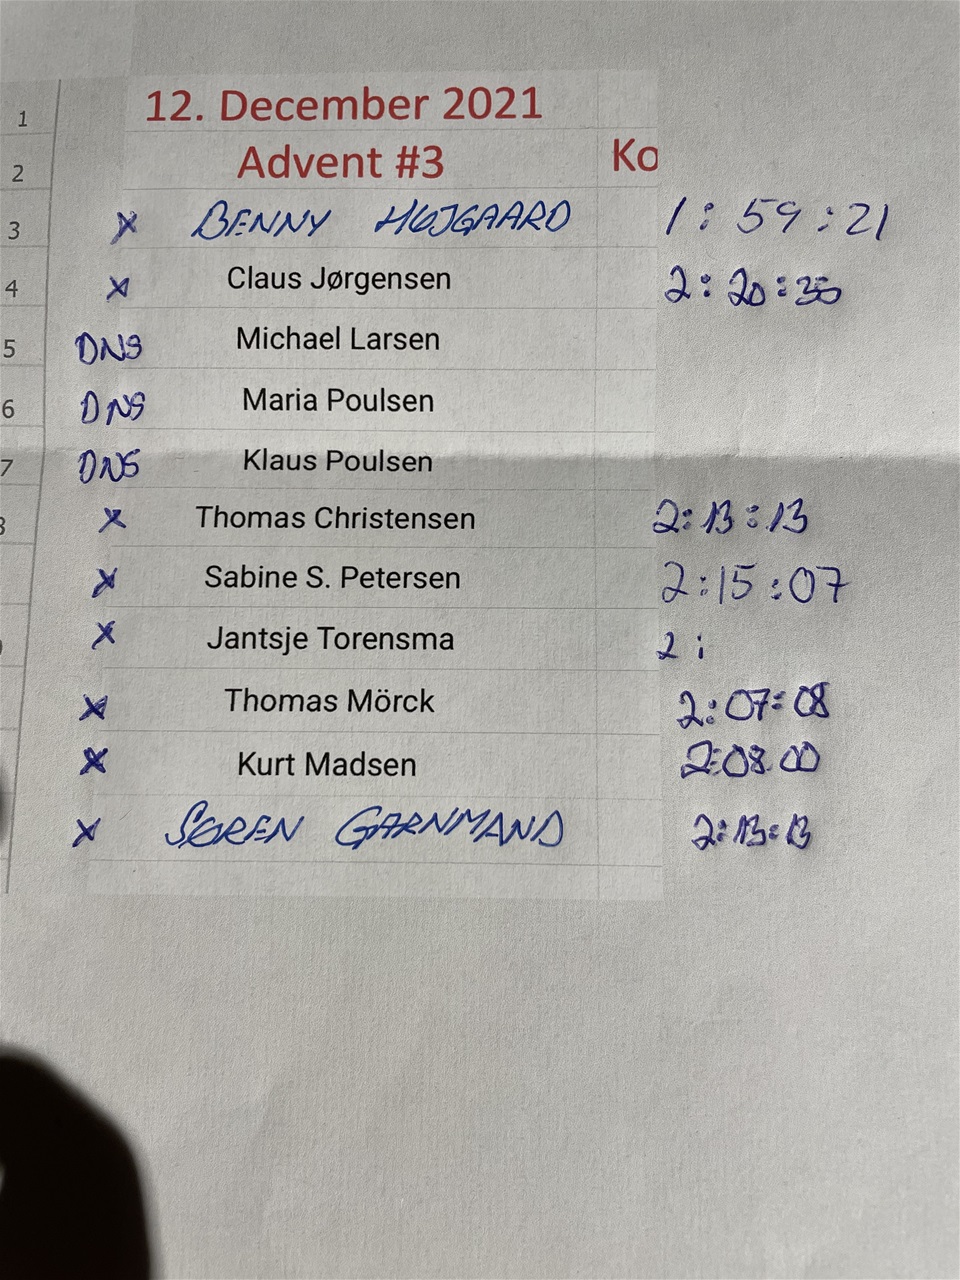 1 12. December 2021
2 Advent #3 Ko
3 X BENNY HØJGAARD 1:59:21
4 X Claus Jørgensen 2:20:30
5 DNS Michael Larsen
6 DNS Maria Poulsen
7 DNS Klaus Poulsen
X Thomas Christensen 2:13:13
X Sabine S. Petersen 2:15:07
X Jantsje Torensma 2:
X Thomas Mörck 2:07:08
X Kurt Madsen 2:08.00
X SØREN GARNMAND 2:13:13